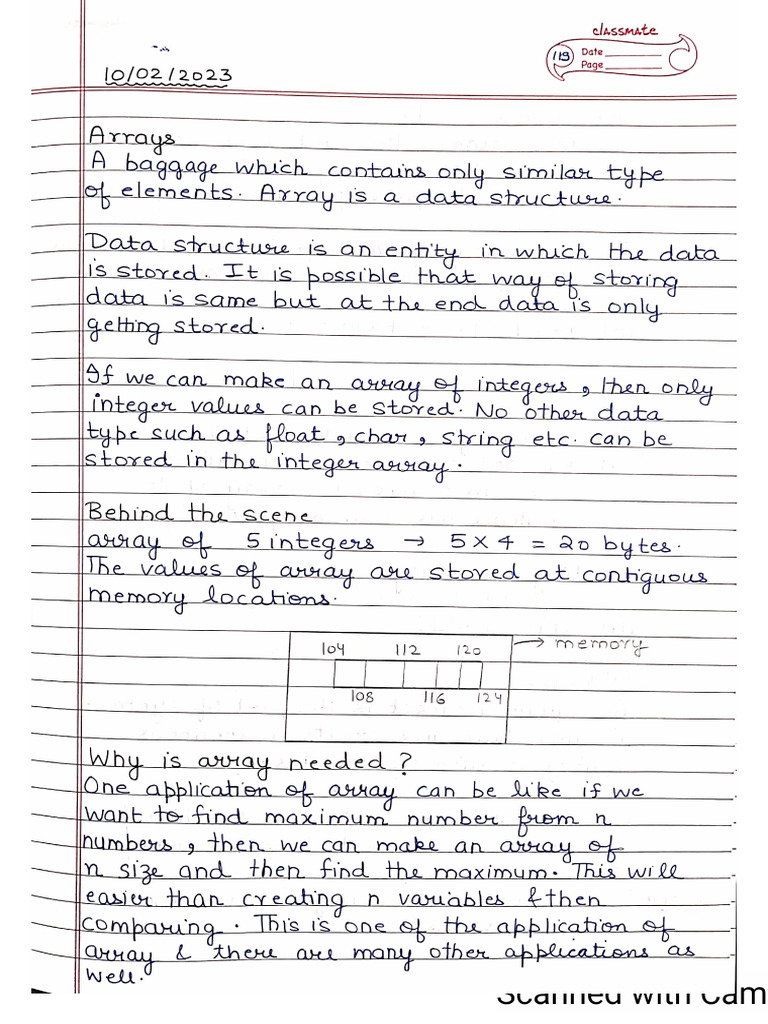 classmate
119
Date
Page
10/02/2023
Arrays
A baggage which contains only similar type
of elements. Array is a data structure.
Data structure is an entity in which the data
is stored. It is possible that way of storing
data is same but at the end data is only
getting stored.
If we can make an array of integers, then only
integer values can be stored. No other data
type such as float, char, string etc. can be
stored in the integer array.
Behind the scene
array of 5 integers → 5 × 4 = 20 bytes.
The values of array are stored at contiguous
memory locations.
104 112 120 → memory
108 116 124
Why is array needed?
One application of array can be like if we
want to find maximum number from n
numbers, then we can make an array of
n size and then find the maximum. This will
easier than creating n variables & then
comparing. This is one of the application of
array & there are many other applications as
well.
Scanned with Cam